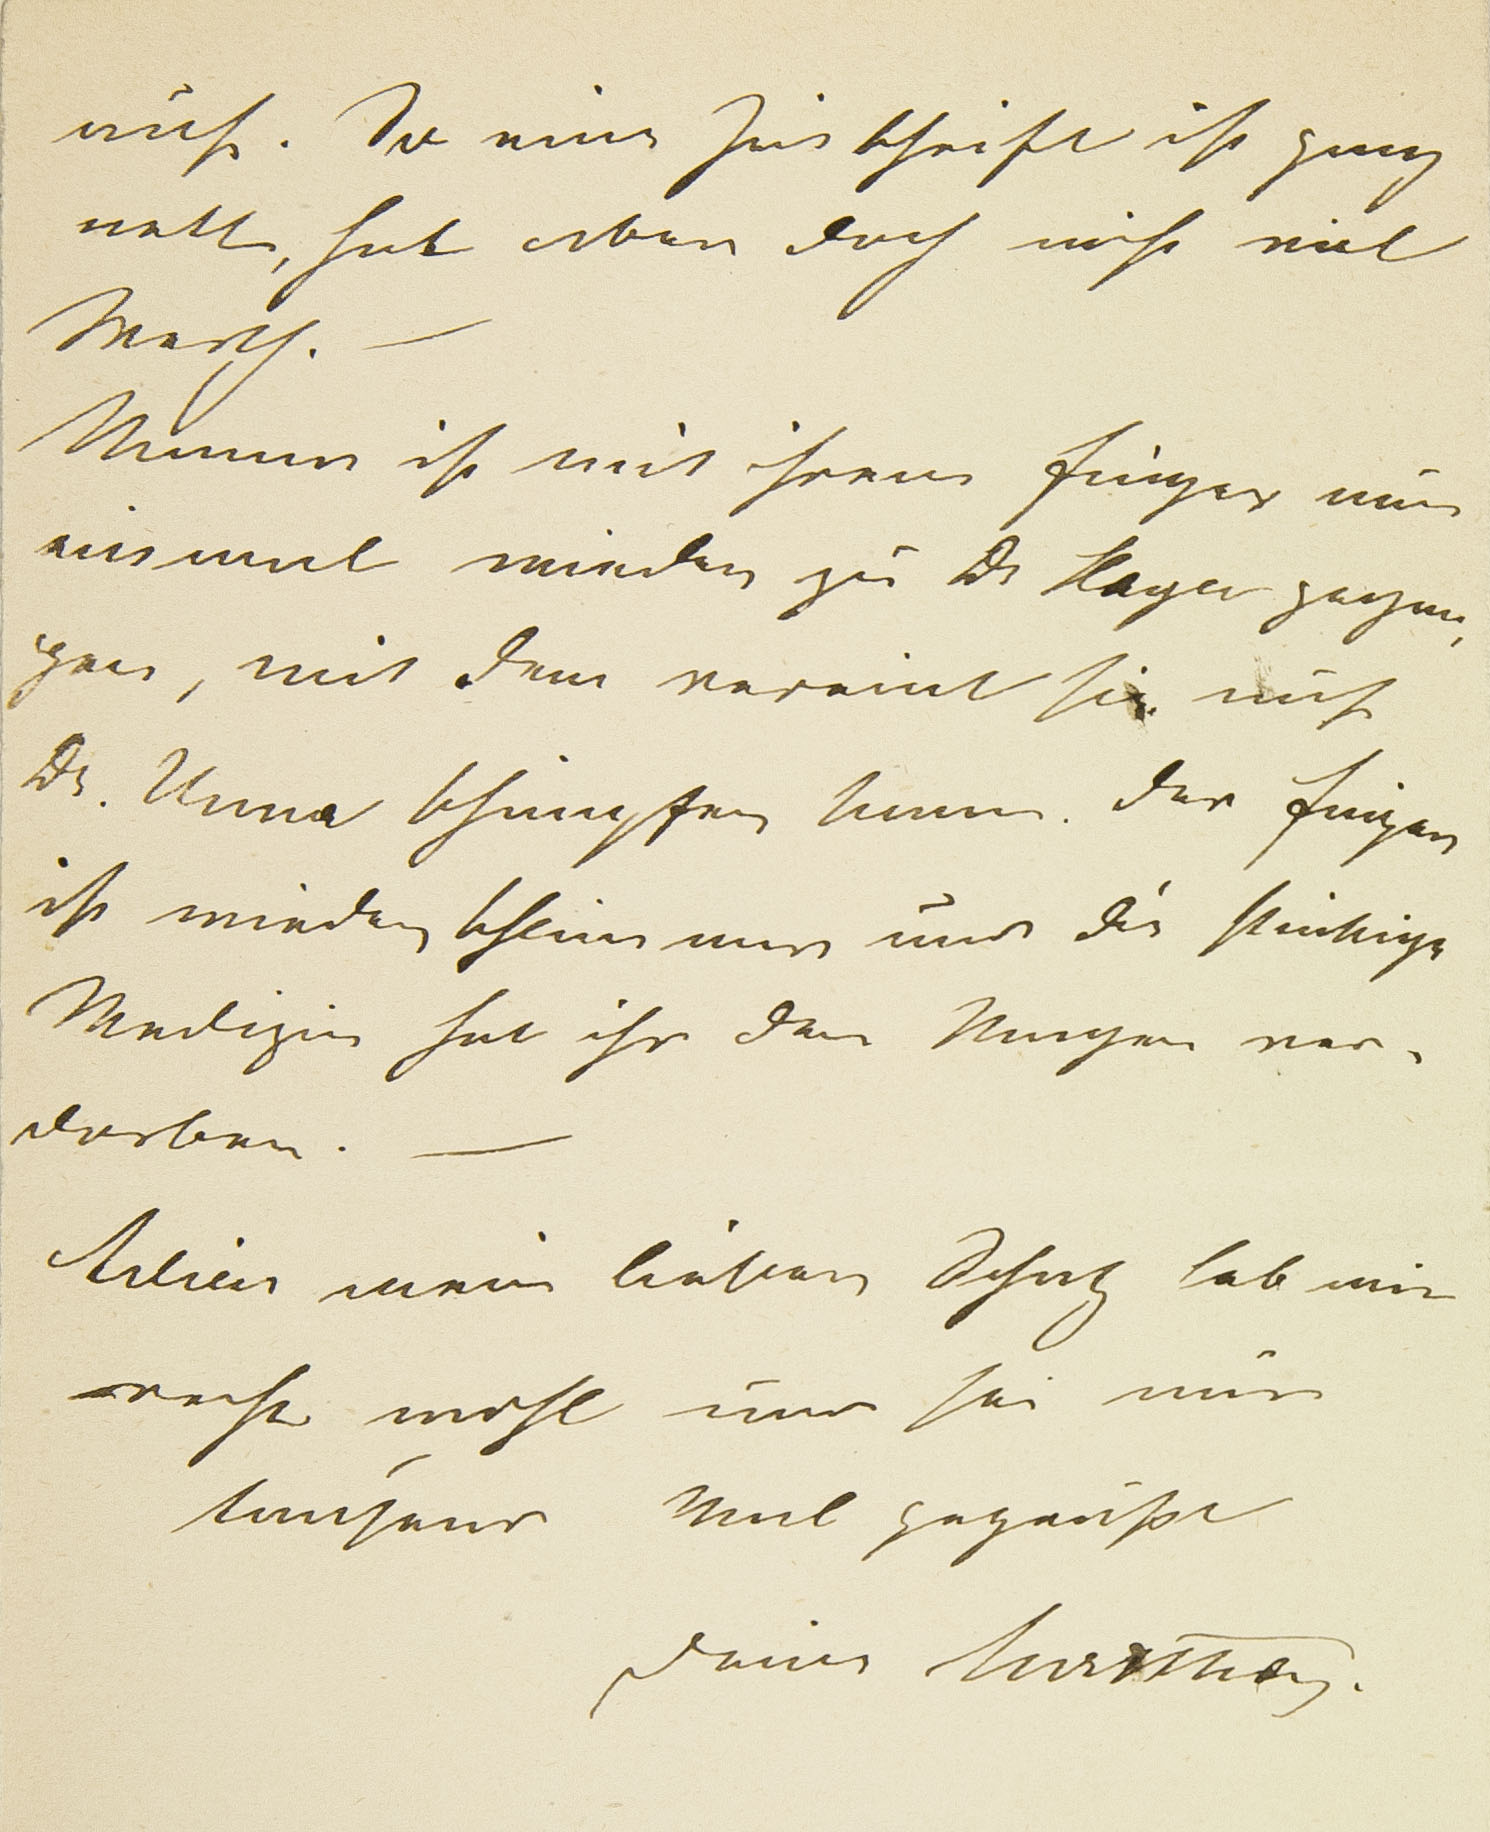 auch. So eine Zuschrift ist ganz
nett, hat aber doch nicht viel
Werth. —
Mama ist mit ihrem Finger nun
einmal wieder zu Dr Hager gegan-
gen, mit dem vereint sie auf
Dr. Unna schimpfen kann. Der Finger
ist wieder schlimmer und die stinkige
Medizin hat ihr den Magen ver-
dorben. —
Adieu mein lieber Schatz leb mir
recht wohl und sei mir
tausend Mal gegrüßt
Deine